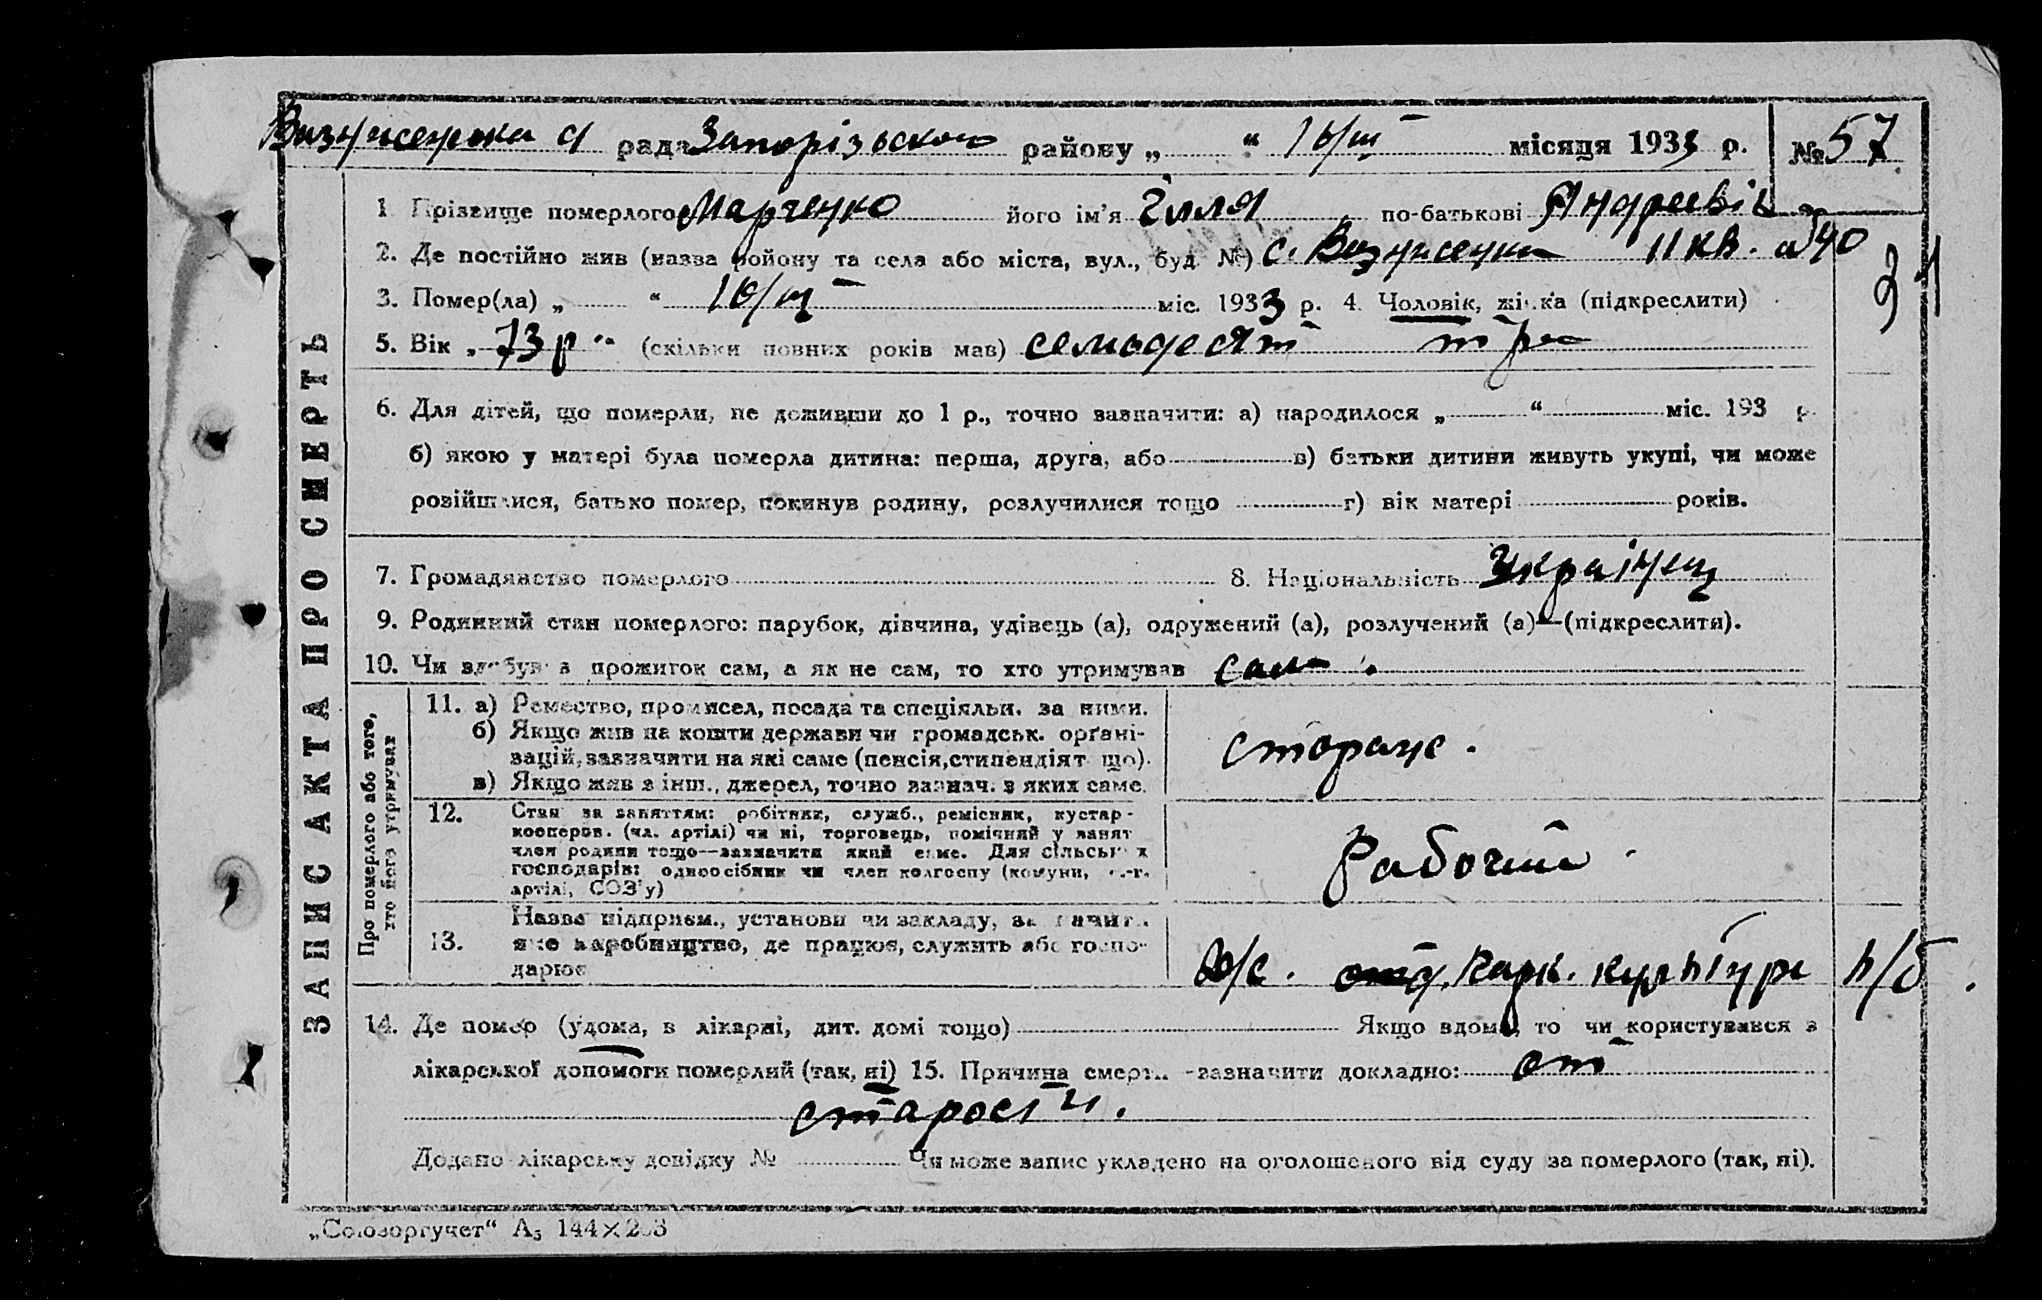 Вознисенська с/ рада Запорізького району „ “ 16/III місяця 1933 р. № 57
1 Прізвище померлого Марченко його ім’я Ілля по-батькові Андреєвіч
2. Де постійно жив (назва ройону та села або міста, вул., буд. №) с. Вознисенка 11 кв. а 40
3. Помер(ла) „ “ 16/III міс. 1933 р. 4. Чоловік, жінка (підкреслити)
31
5. Вік „ 73 р “ (скільки повних років мав) семодесят три
6. Для дітей, що померли, не доживши до 1 р., точно зазначити: а) народилося „ “ міс. 193 р.
б) якою у матері була померла дитина: перша, друга, або в) батьки дитини живуть укупі, чи може
розійшлися, батько помер, покинув родину, розлучилися тощо г) вік матері років.
7. Громадянство померлого 8. Національність Українец
9. Родинний стан померлого: парубок, дівчина, удівець (а), одружений (а), розлучений (а)—(підкреслити).
10. Чи здобував прожиток сам, а як не сам, то хто утримував сам.
ЗАПИС АКТА ПРО СМЕРТЬ
Про померлого або того, хто його утримував
11. а) Ремество, промисел, посада та спеціяльн. за ними.
б) Якщо жив на кошти держави чи громадськ. орґані-
зацій, зазначити на які саме (пенсія, стипендіят що).
в) Якщо жив з інш., джерел, точно зазнач. з яких саме.
сторож.
12. Стан за заняттям: робітник, служб., ремісник, кустар-
кооперов. (чл. артілі) чи ні, торговець, помічний у занят
член родини тощо—зазначити який саме. Для сільських
господарів: одноосібник чи член колгоспу (комуни, с.-г.
артілі, СОЗ’у)
Рабочий.
13. Назва підприєм., установи чи закладу, зазначити
яке виробництво, де працює, служить або госпо-
дарює
отд. парк. культури п/б.
14. Де помер (удома, в лікарні, дит. домі тощо) Якщо вдома, то чи користувався з
лікарської допомоги померлий (так, ні) 15. Причина смерти -зазначити докладно: от
старости.
Додано лікарську довідку № Чи може запис укладено на оголошеного від суду за померлого (так, ні).
„Союзоргучет“ А₅ 144×203